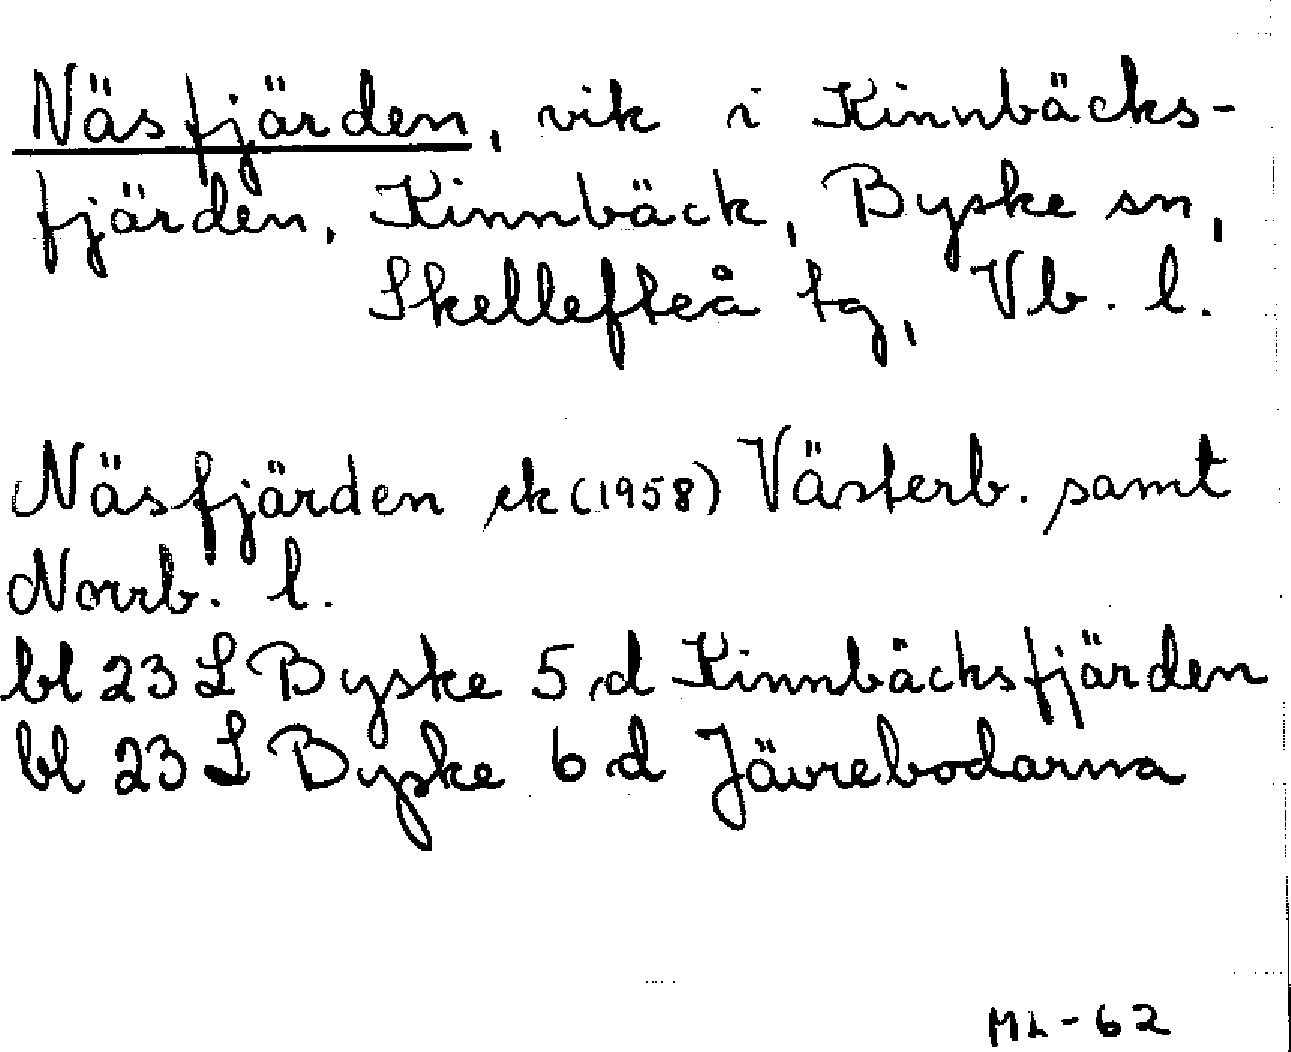 Näsfjärden, vik i Kinnbäcks-
fjärden, Kinnbäck, Byske sn,
Skellefteå tg, Vb. l.
Näsfjärden ek (1958) Västerb. samt
Norrb. l.
bl 23 L Byske 5 d Kinnbäcksfjärden
bl 23 L Byske 6 d Jävrebodarna
ML-62